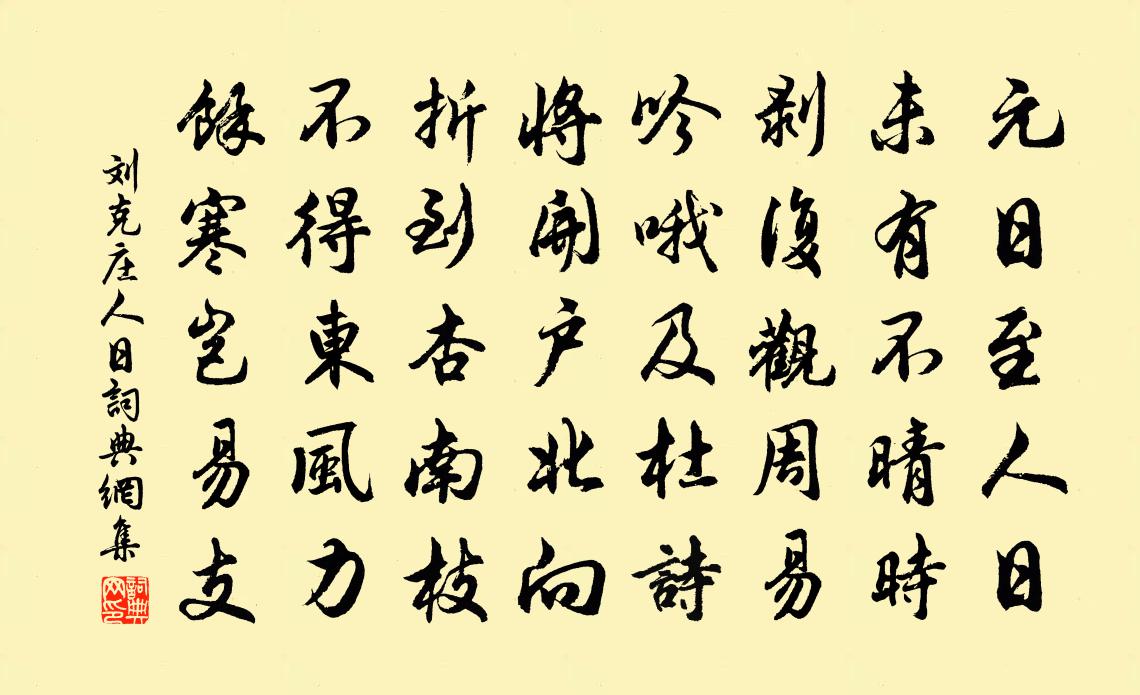 元日至人日
未有不晴時
剥復觀周易
吟哦及杜詩
將開户北向
折到杏南枝
不得東風力
餘寒豈易支
刘克庄人日詞典網集
詞典网印